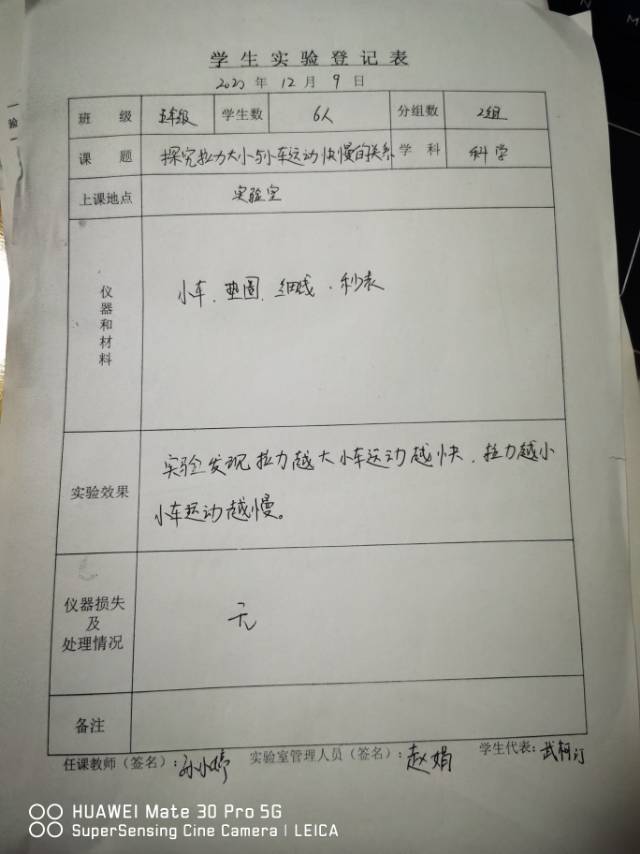 学生实验登记表
2020年12月9日
班级 五年级 学生数 6人 分组数 2组
课题 探究拉力大小与小车运动快慢的关系 学科 科学
上课地点 实验室
仪器和材料 小车、垫圈、细线、秒表
实验效果 实验发现拉力越大小车运动越快、拉力越小
小车运动越慢。
仪器损失
及
处理情况 无
备注
任课教师（签名）：孙小婷 实验室管理人员（签名）：赵娟 学生代表：武
HUAWEI Mate 30 Pro 5G
SuperSensing Cine Camera | LEICA